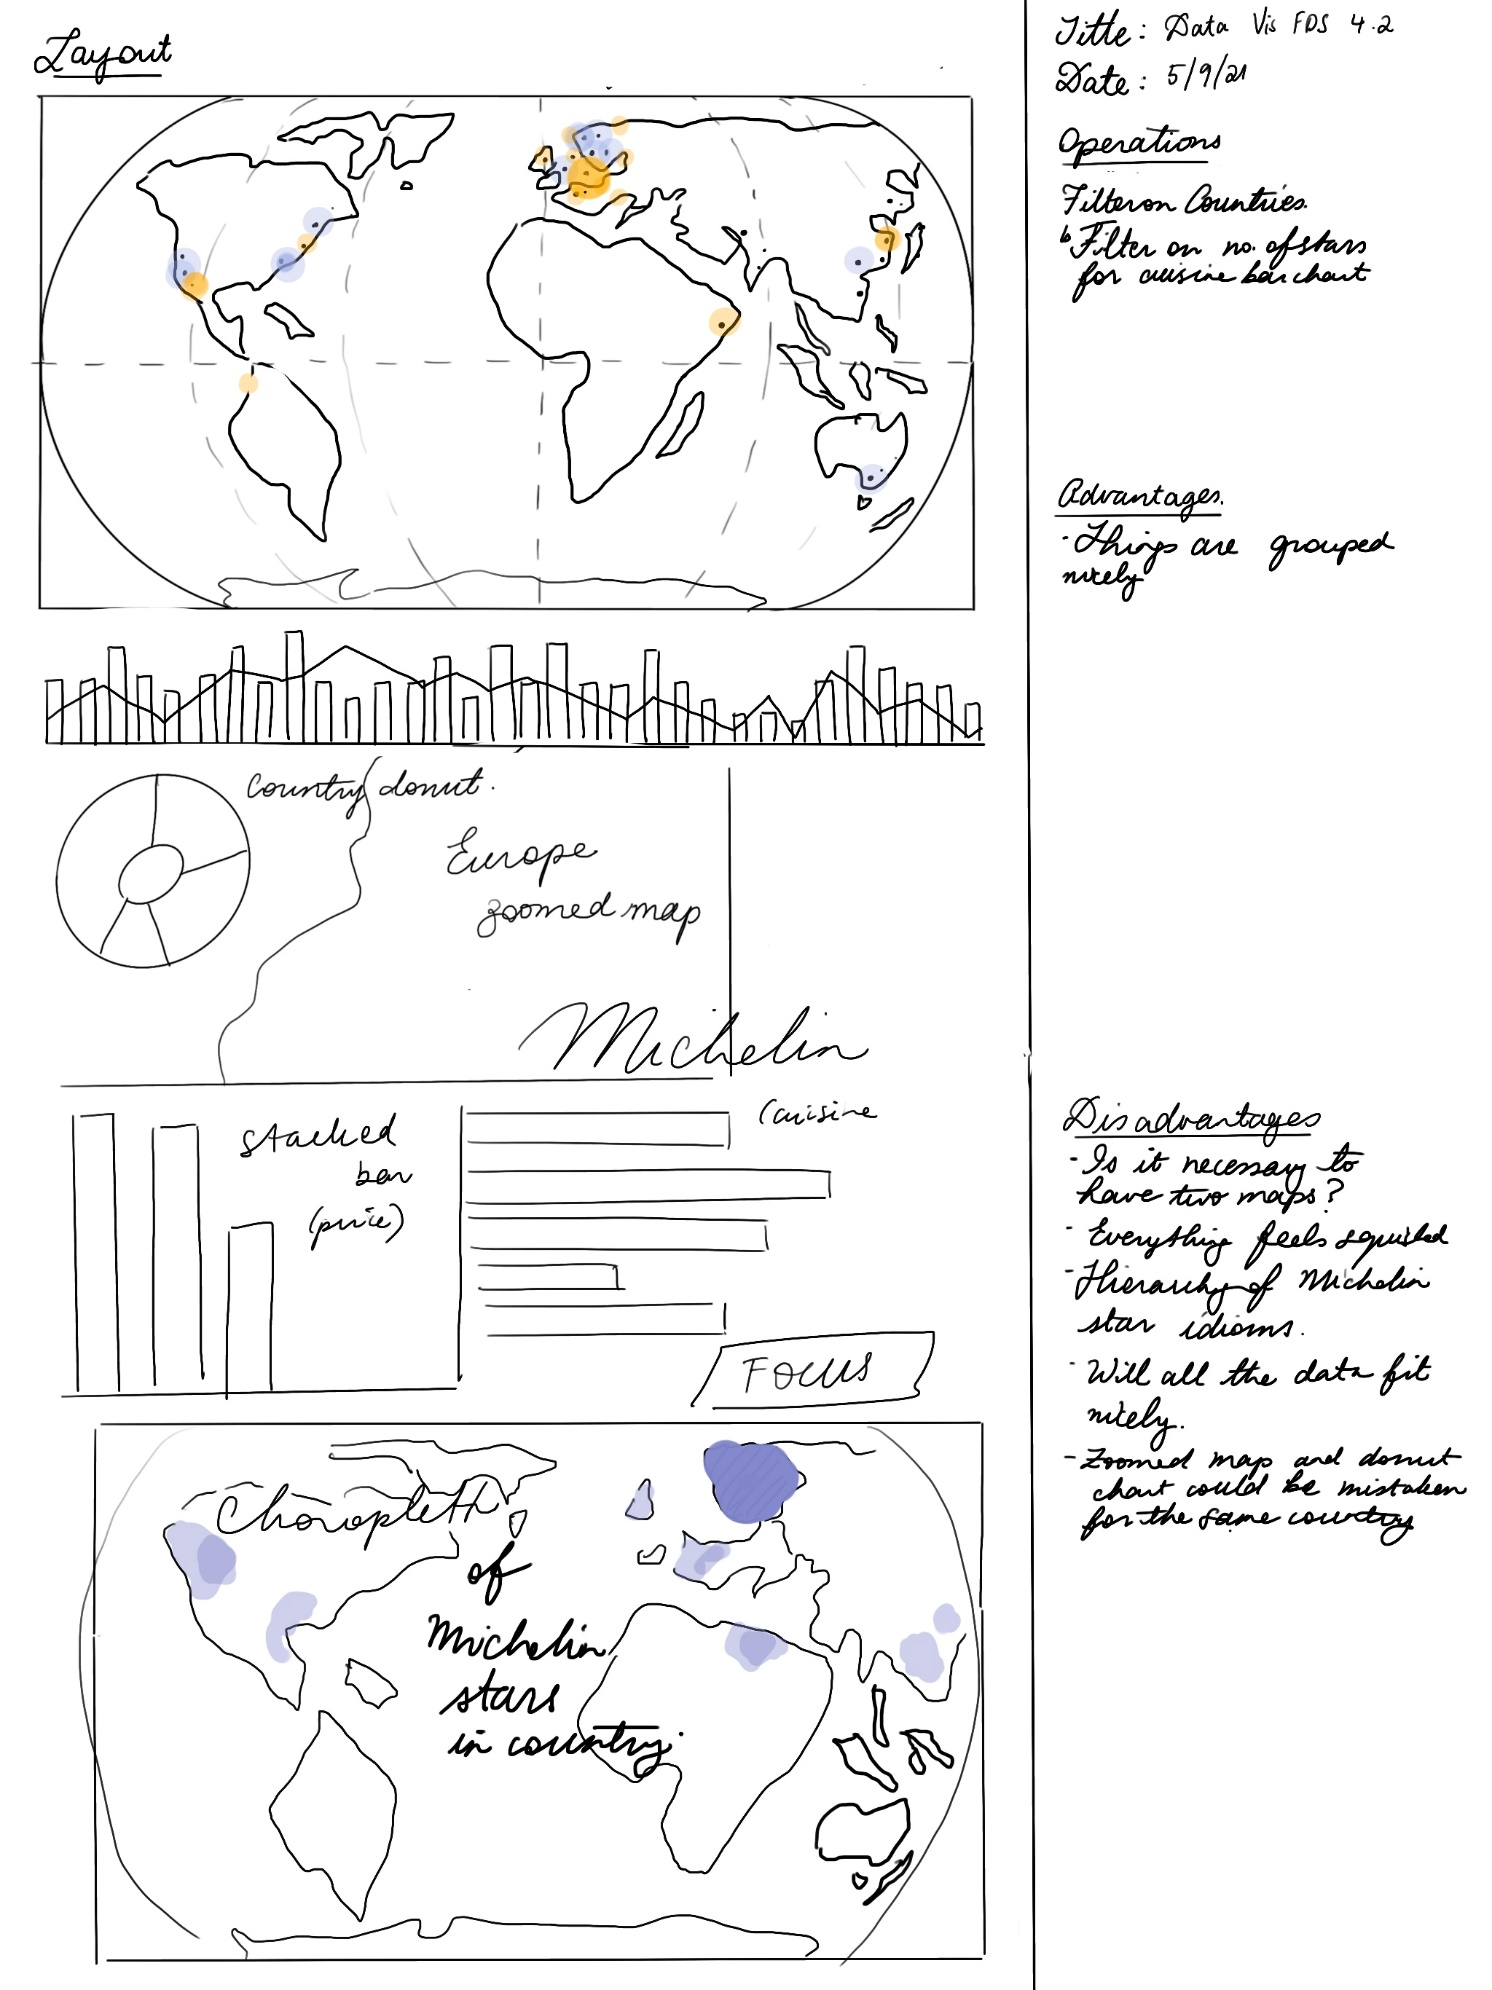 Layout
Country donut.
Europe
zoomed map
Michelin
stacked
bar
(price)
Cuisine
Focus
Choropleth
of
Michelin
stars
in country.
Title: Data Vis FDS 4.2
Date: 5/9/21
Operations
Filter on Countries.
Filter on no. of stars
for cuisine bar chart
Advantages.
- Things are grouped
nicely
Disadvantages
- Is it necessary to
have two maps?
- Everything feels squished
- Hierarchy of Michelin
star idioms.
- Will all the data fit
nicely.
- Zoomed map and donut
chart could be mistaken
for the same country